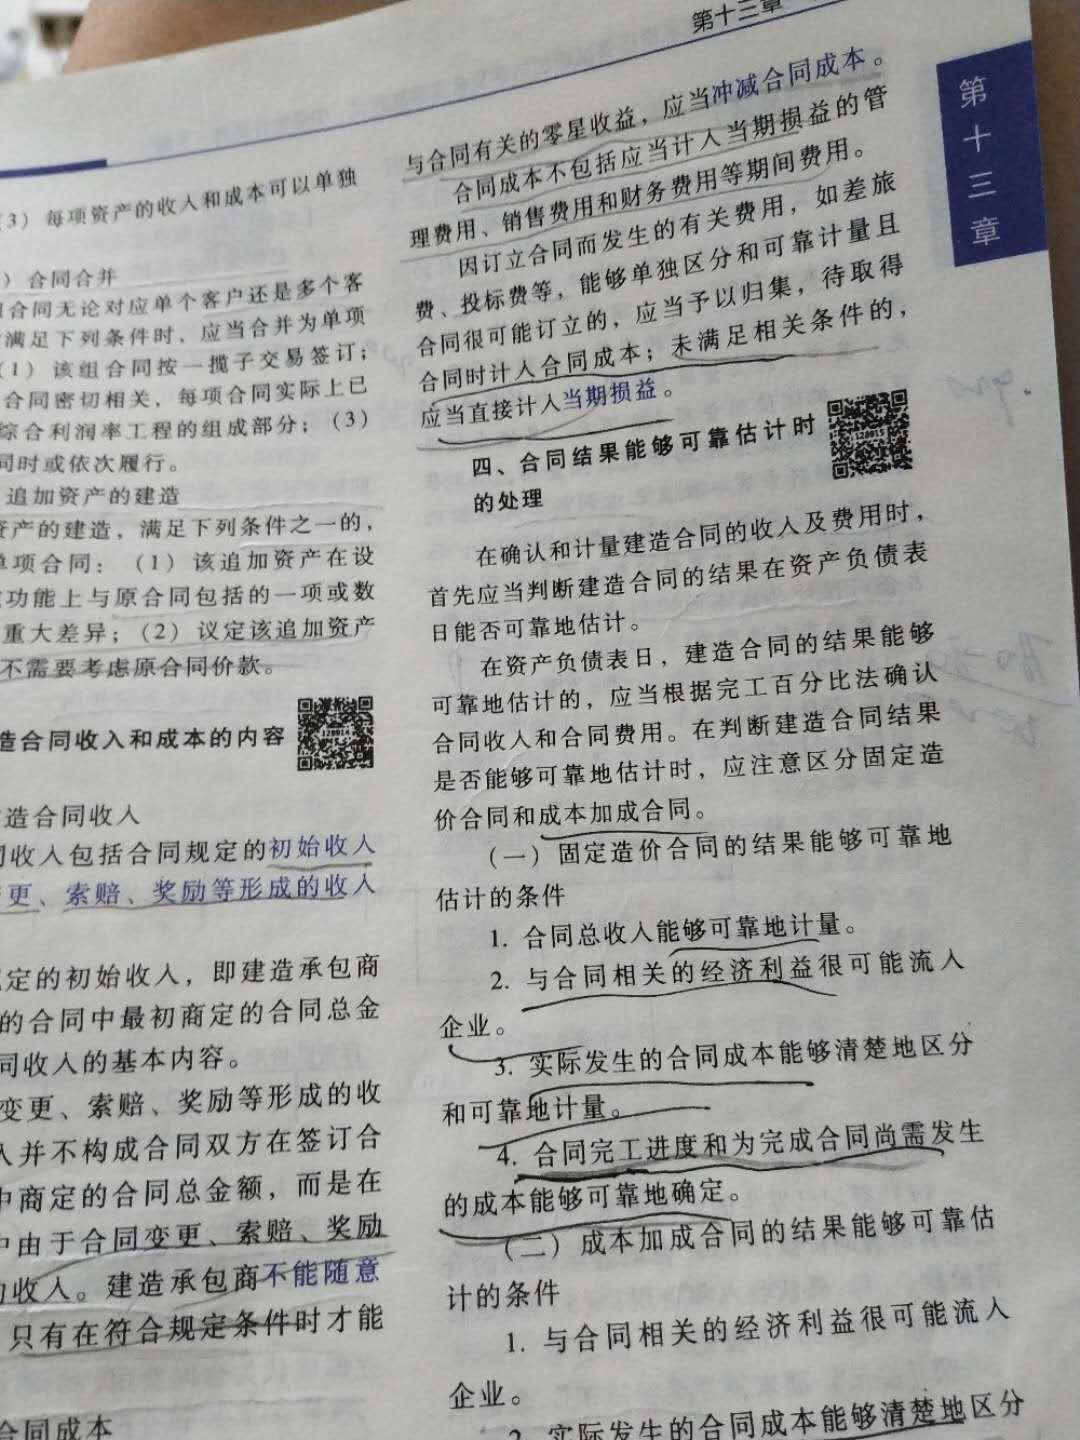 第十三章
3）每项资产的收入和成本可以单独
）合同合并
合同无论对应单个客户还是多个客
满足下列条件时，应当合并为单项
（1）该组合同按一揽子交易签订；
合同密切相关，每项合同实际上已
综合利润率工程的组成部分；（3）
同时或依次履行。
追加资产的建造
资产的建造，满足下列条件之一的，
单项合同：（1）该追加资产在设
功能上与原合同包括的一项或数
重大差异；（2）议定该追加资产
不需要考虑原合同价款。
造合同收入和成本的内容
120014
造合同收入
同收入包括合同规定的初始收入
更、索赔、奖励等形成的收入
定的初始收入，即建造承包商
的合同中最初商定的合同总金
同收入的基本内容。
变更、索赔、奖励等形成的收
入并不构成合同双方在签订合
中商定的合同总金额，而是在
中由于合同变更、索赔、奖励
的收入。建造承包商不能随意
只有在符合规定条件时才能
合同成本
与合同有关的零星收益，应当冲减合同成本。
合同成本不包括应当计入当期损益的管
理费用、销售费用和财务费用等期间费用。
因订立合同而发生的有关费用，如差旅
费、投标费等，能够单独区分和可靠计量且
合同很可能订立的，应当予以归集，待取得
合同时计入合同成本；未满足相关条件的，
应当直接计入当期损益。
四、合同结果能够可靠估计时
的处理
120015
在确认和计量建造合同的收入及费用时，
首先应当判断建造合同的结果在资产负债表
日能否可靠地估计。
在资产负债表日，建造合同的结果能够
可靠地估计的，应当根据完工百分比法确认
合同收入和合同费用。在判断建造合同结果
是否能够可靠地估计时，应注意区分固定造
价合同和成本加成合同。
（一）固定造价合同的结果能够可靠地
估计的条件
1. 合同总收入能够可靠地计量。
2. 与合同相关的经济利益很可能流入
企业。
3. 实际发生的合同成本能够清楚地区分
和可靠地计量。
4. 合同完工进度和为完成合同尚需发生
的成本能够可靠地确定。
（二）成本加成合同的结果能够可靠估
计的条件
1. 与合同相关的经济利益很可能流入
企业。
2. 实际发生的合同成本能够清楚地区分
第十三章